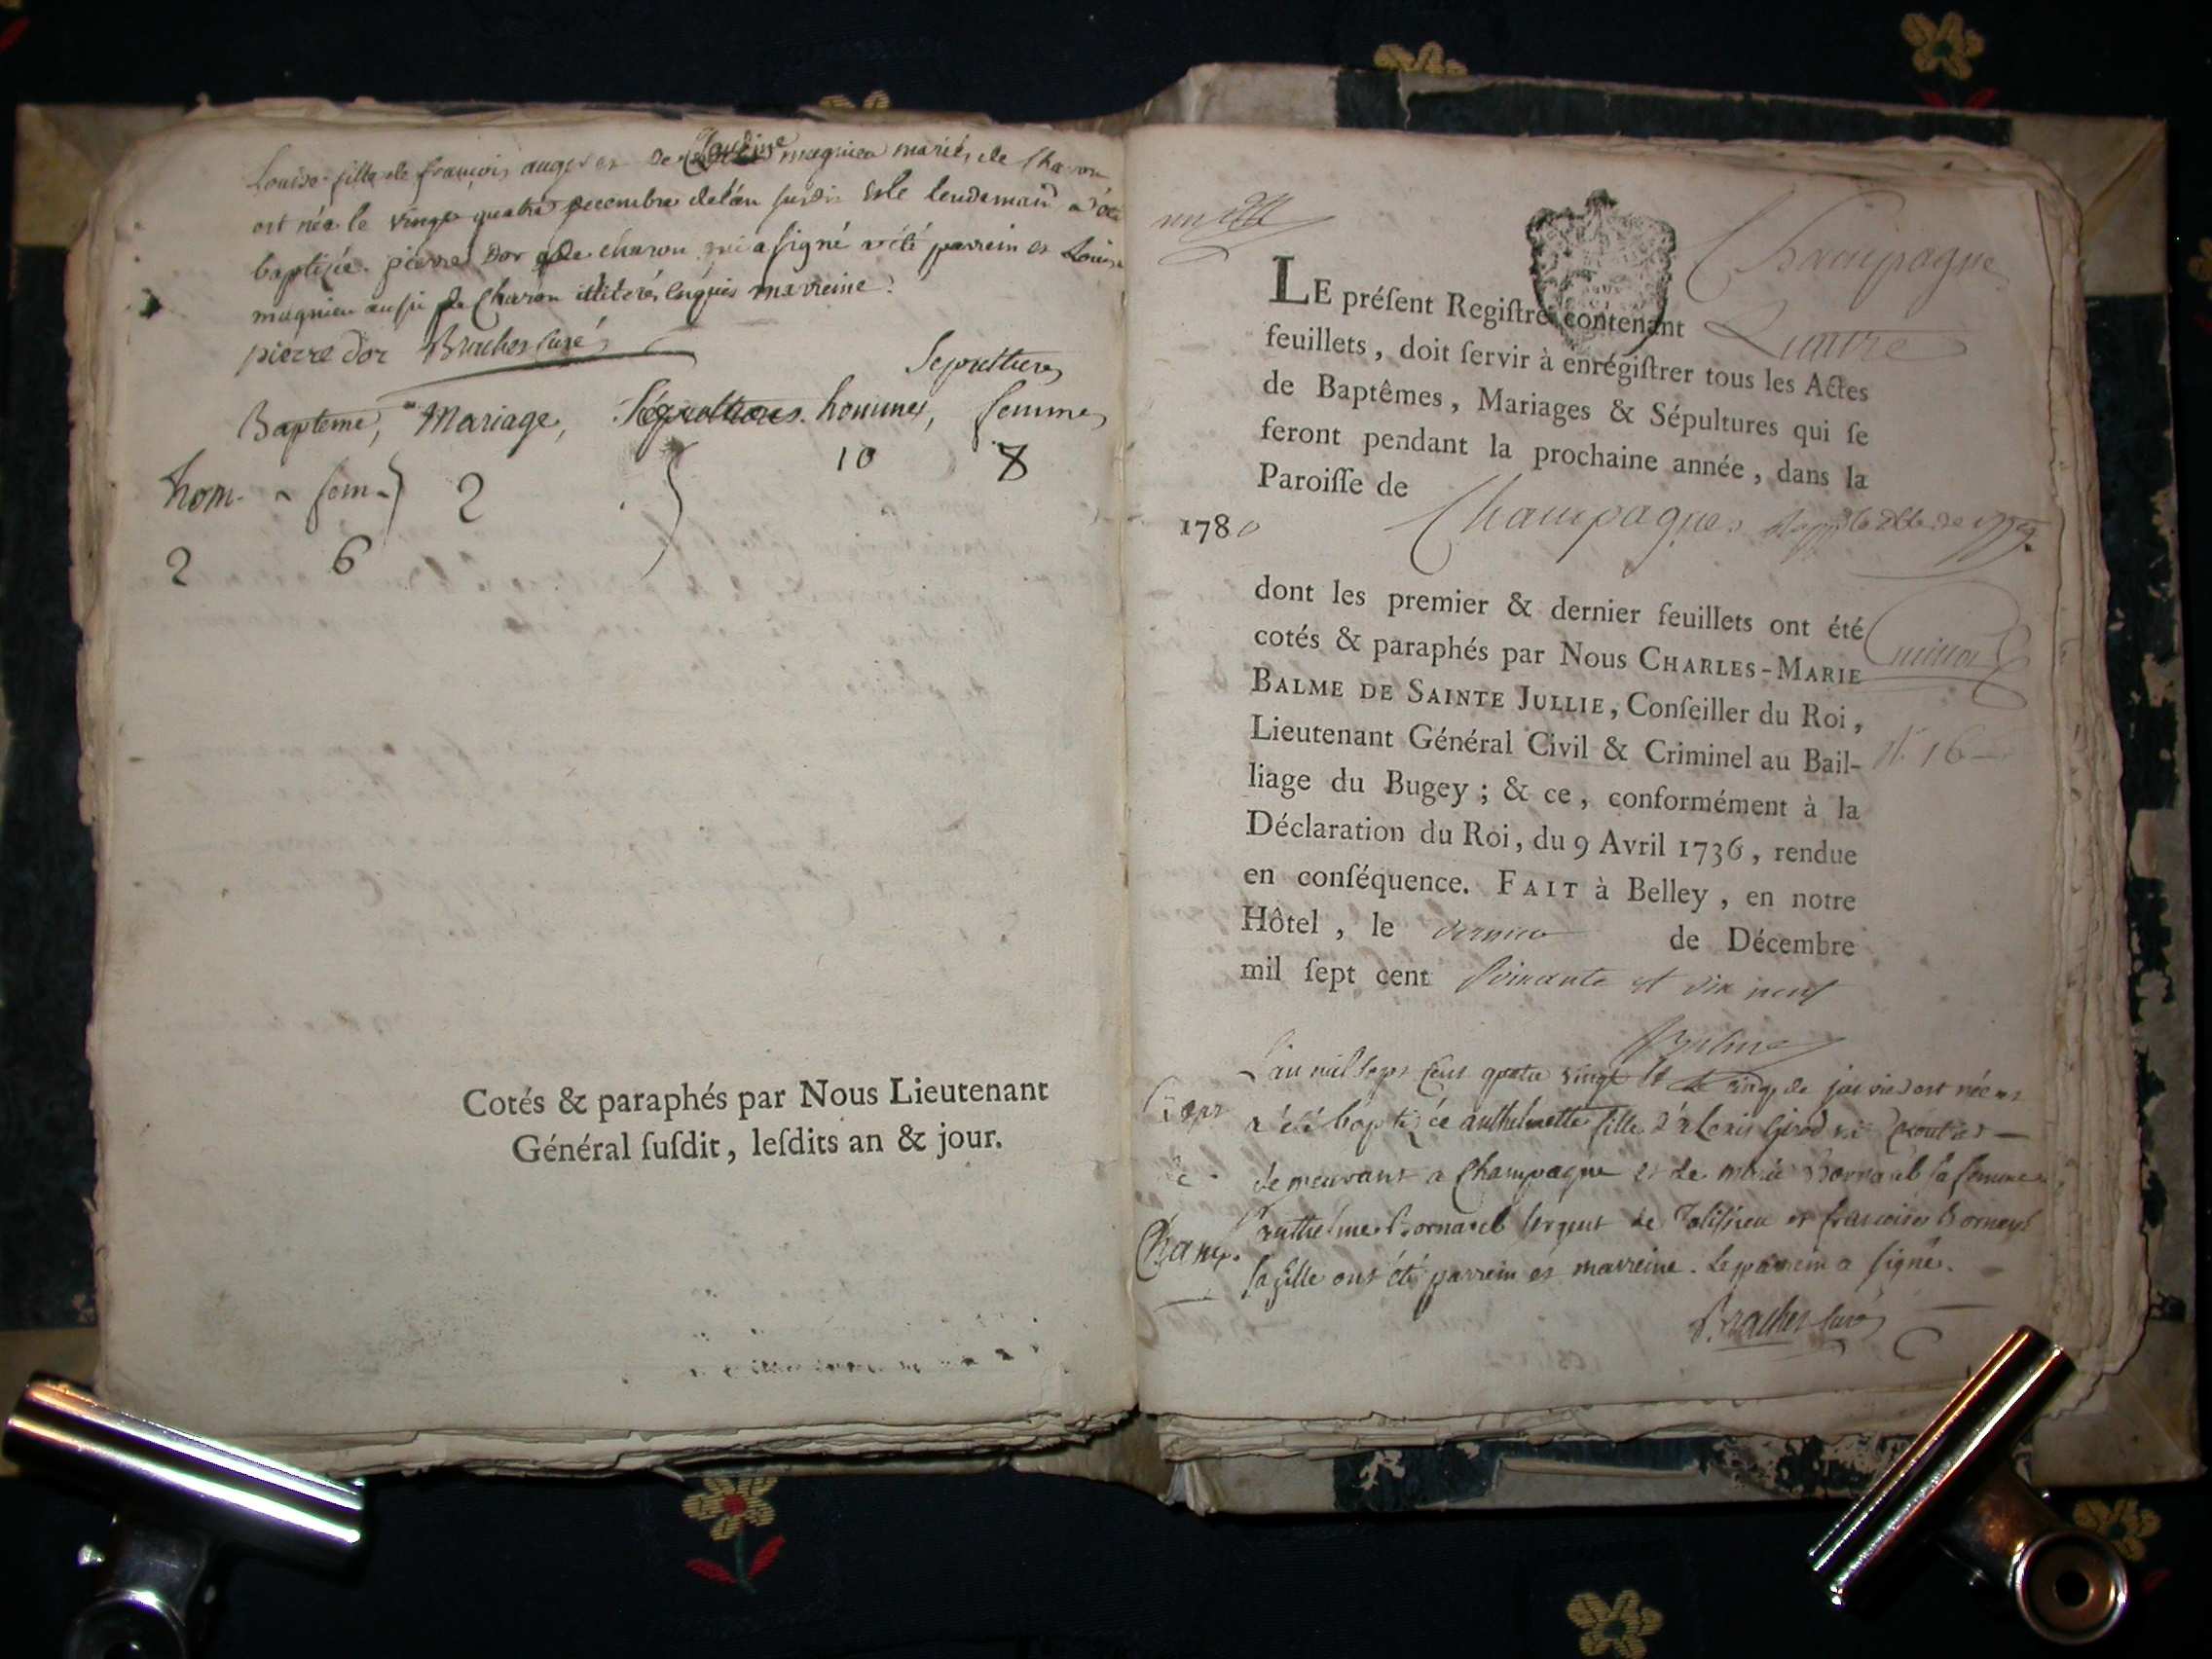 Louise fille de françois auger et de Claudine magnien mariés de Charon
est née le vingt quatre decembre de l'an susdit et le lendemain a été
baptisée. pierre Dor de charon qui a signé a été parrein et Louise
magnien aussi de Charon illiterés enquis marreine.
pierre dor Brachet curé
Sepultures
Bapteme, Mariage, Sépultures. hommes, femmes
10 8
hom. fem. 2
2 6
Cotés & paraphés par Nous Lieutenant
Général ſuſdit, leſdits an & jour.
un
Champagne
LE préſent Regiſtre contenant
feuillets, doit ſervir à enrégiſtrer tous les Actes
de Baptêmes, Mariages & Sépultures qui ſe
feront pendant la prochaine année, dans la
Paroiſſe de Champagne
1780
dont les premier & dernier feuillets ont été
cotés & paraphés par Nous CHARLES-MARIE
BALME DE SAINTE JULLIE, Conſeiller du Roi,
Lieutenant Général Civil & Criminel au Bail-
liage du Bugey; & ce, conformément à la
Déclaration du Roi, du 9 Avril 1736, rendue
en conſéquence. FAIT à Belley, en notre
Hôtel, le dernier de Décembre
mil ſept cent soixante et dix neuf
16
Balme
L'an mil sept cent quatre vingt et le cinq de janvier est née et
a été baptizée anthelmette fille d'alexis Girod
demeurant a Champagne et de marie Bornarel sa femme
anthelme Bornarel sergent de Talissieu et francoise Bornarel
Champ.
sa fille ont été parrein et marreine. Le parrein a signé.
Brachet curé